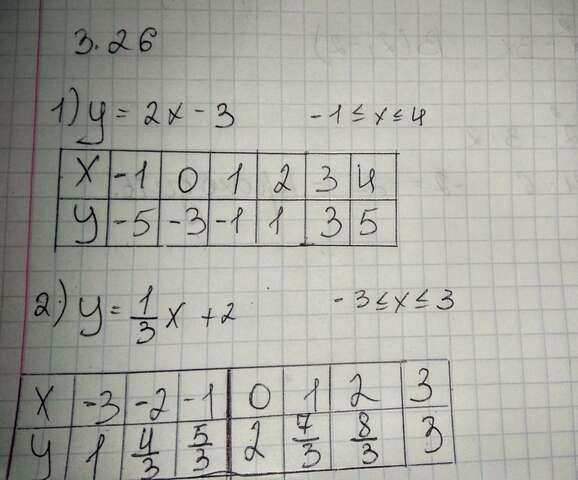 3.26
1) y = 2x - 3 -1 ≤ x ≤ 4
X -1 0 1 2 3 4
y -5 -3 -1 1 3 5
2) y = 1/3 x + 2 -3 ≤ x ≤ 3
X -3 -2 -1 0 1 2 3
y 1 4/3 5/3 2 7/3 8/3 3